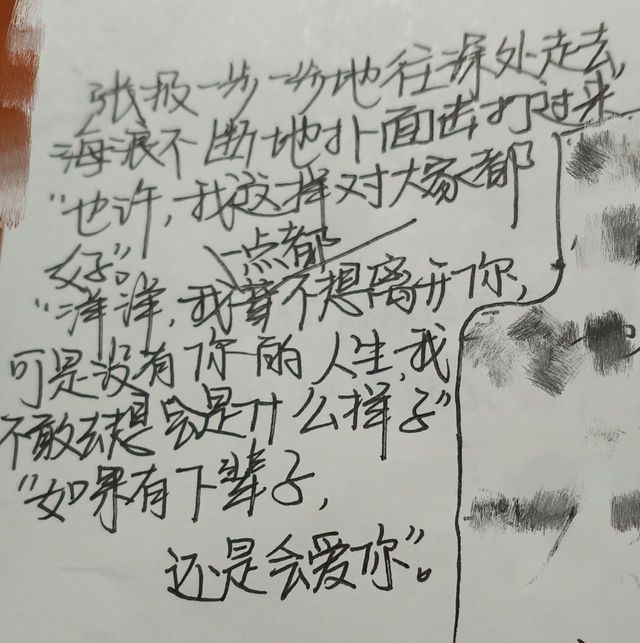 张扱一步一步地往深处走去,
海浪不断地扑面击打过来
"也许,我这样对大家都
好。"
一点都
"洋洋,我不想离开你,
可是没有你的人生,我
不敢去想会是什么样子"
"如果有下辈子,
还是会爱你"。